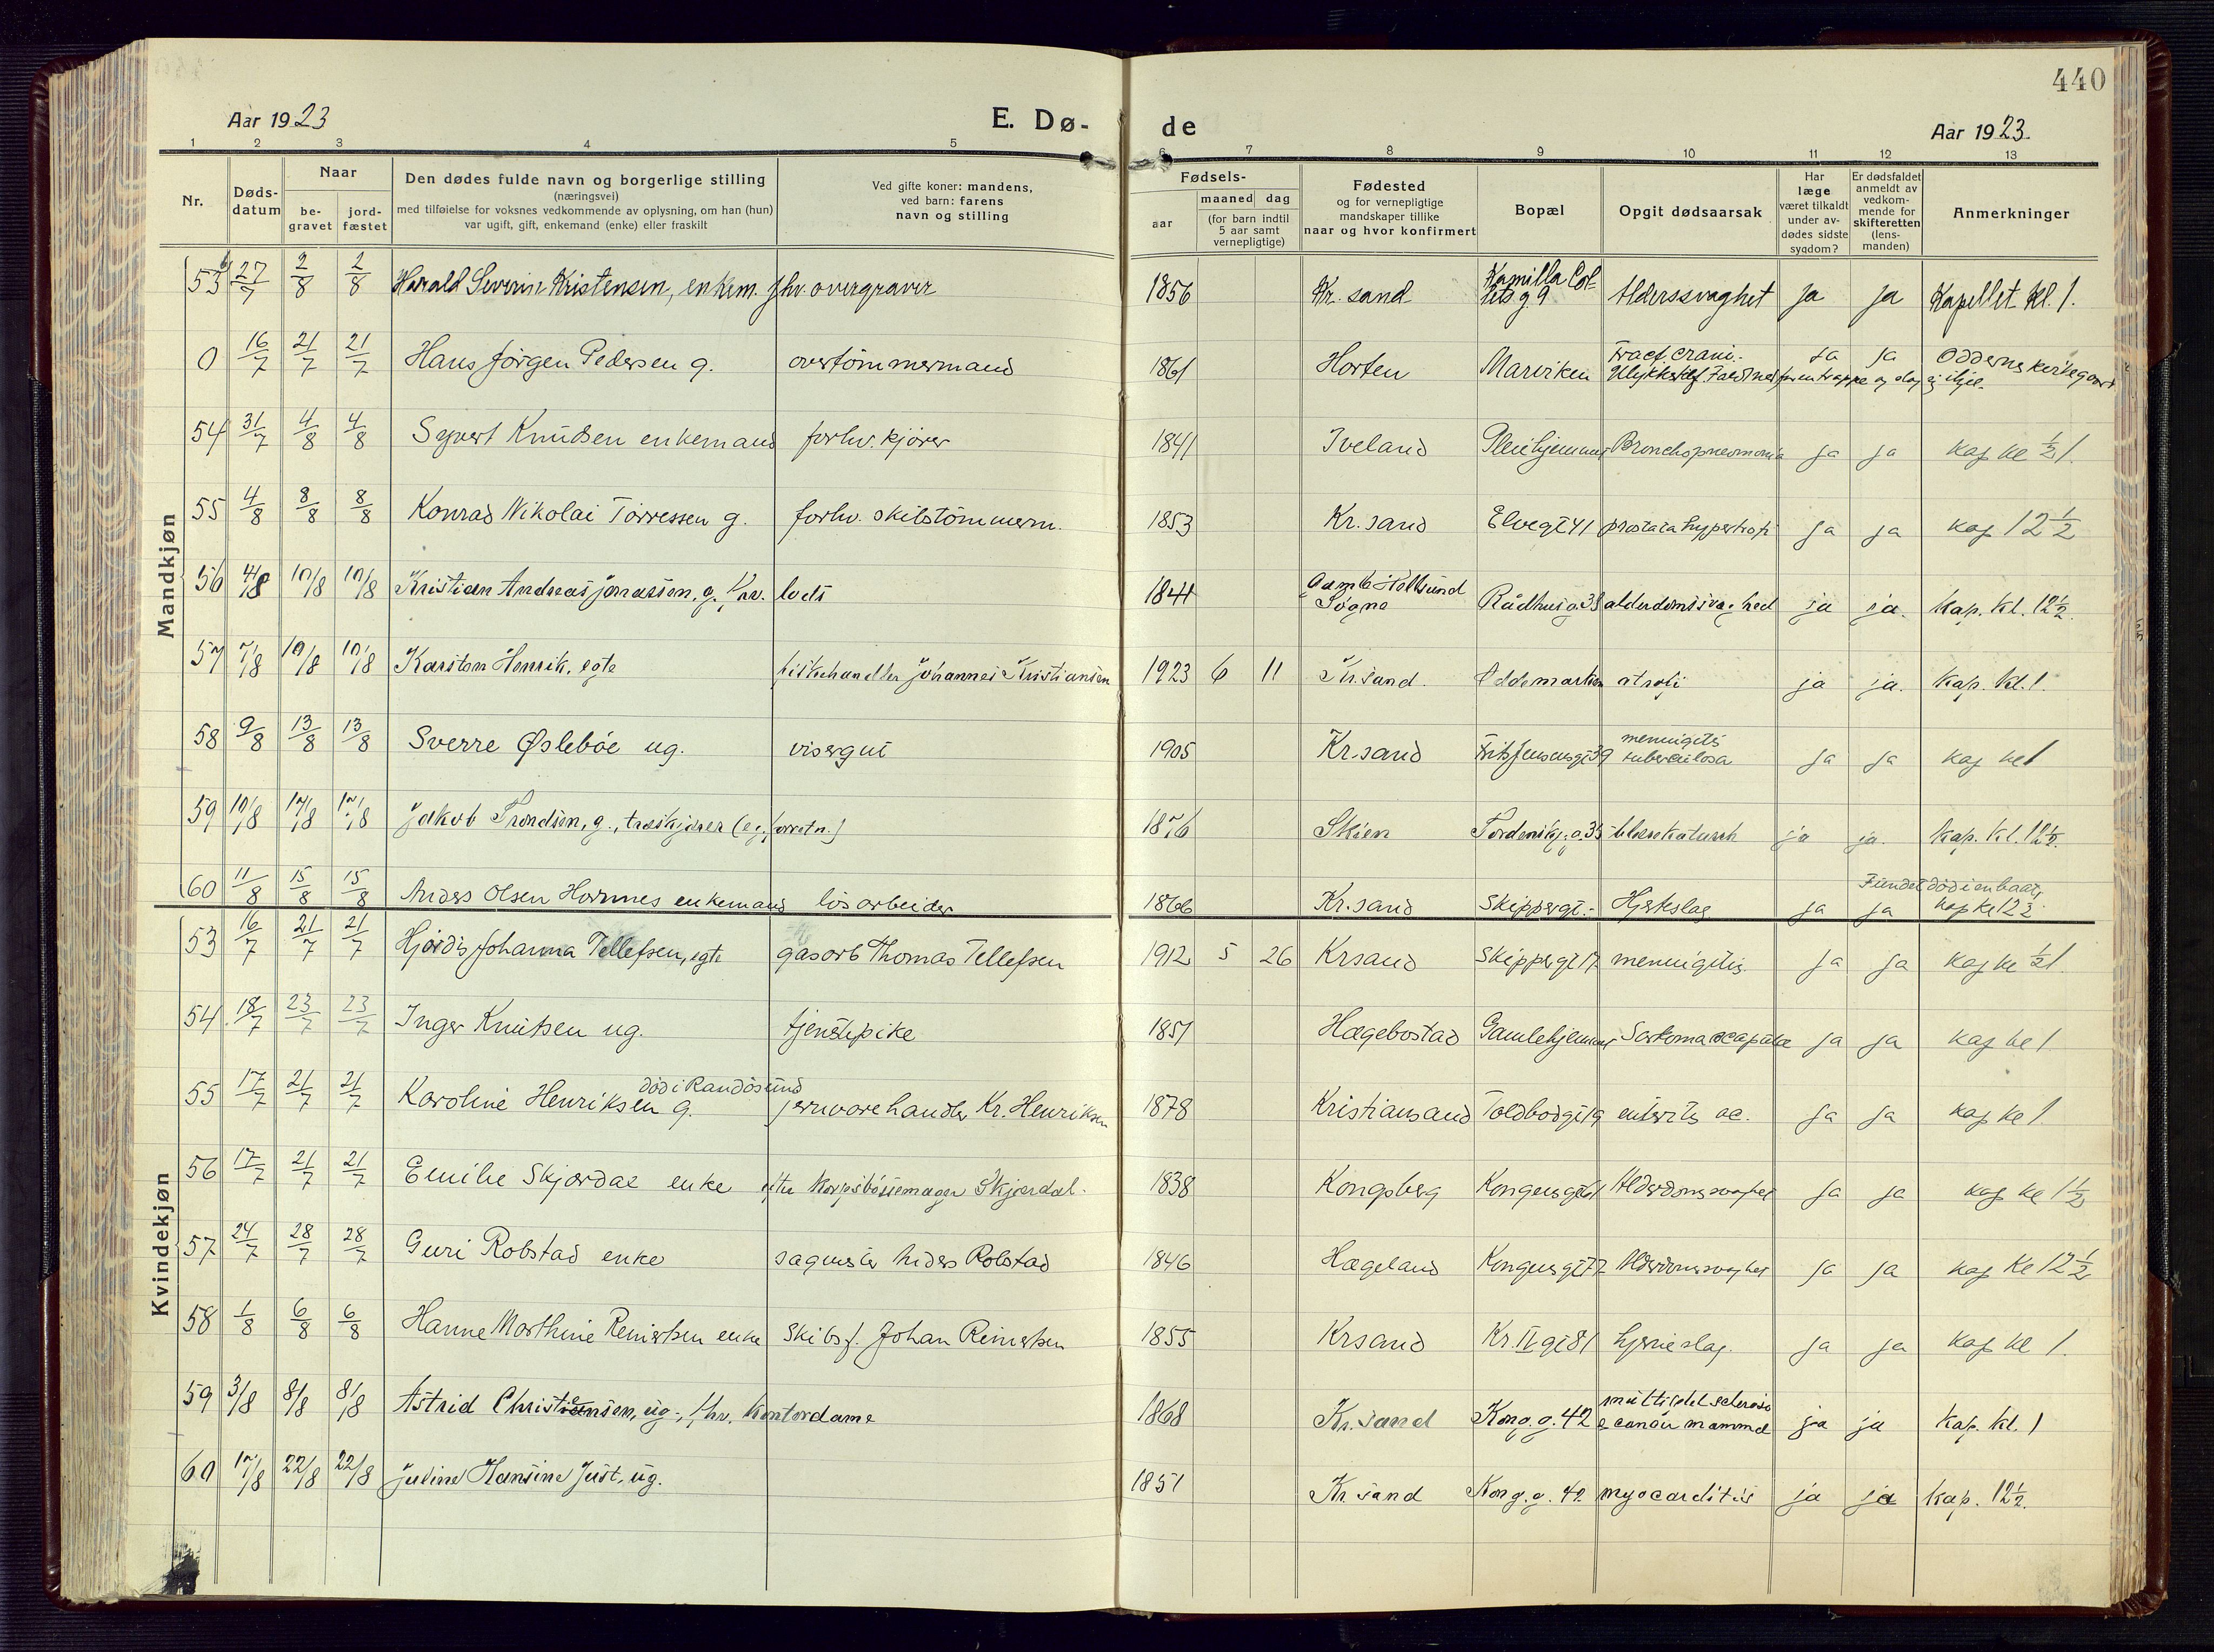 440
Aar 1923
E. Dø-
de
Aar 1923.
1 2 3 4 5 6 7 8 9 10 11 12 13
Nr.
Døds-
datum
Naar
be-
gravet
jord-
fæstet
Den dødes fulde navn og borgerlige stilling
(næringsvei)
med tilføielse for voksnes vedkommende av oplysning, om han (hun)
var ugift, gift, enkemand (enke) eller fraskilt
Ved gifte koner: mandens,
ved barn: farens
navn og stilling
Fødsels-
aar
maaned dag
(for barn indtil
5 aar samt
vernepligtige)
Fødested
og for vernepligtige
mandskaper tillike
naar og hvor konfirmert
Bopæl
Opgit dødsaarsak
Har
læge
været tilkaldt
under av-
dødes sidste
sygdom?
Er dødsfaldet
anmeldt av
vedkom-
mende for
skifteretten
(lens-
manden)
Anmerkninger
Mandkjøn
53 27/7 2/8 2/8 Harald Severin Kristensen, enkem. fhv. overgraver 1856 Kr. sand Kamilla Col-
lets g 9 Alderssvaghet ja ja Kapellet kl. 1.
0 16/7 21/7 21/7 Hans Jørgen Pedersen g. overtömmermand 1861 Horten Marviken Fract. crani.
ja ja Oddernes kirkegaard
54 31/7 4/8 4/8 Syvert Knudsen enkemand forhv. kjörer 1841 Iveland Pleiehjemmet Bronchopneumonia ja ja kap kl ½ 1.
55 4/8 8/8 8/8 Konrad Nikolai Torressen g. forhv. skibstömmerm. 1853 Kr. sand Elvegt 41 prostata hypertrofi ja ja kap 12 ½
56 4/8 10/8 10/8 Kristian Andreas Jonassen, g. fhv. lods 1841 Gamle Hellesund
Søgne Rådhusg. 38 alderdomssvaghed ja ja. Kap. kl. 12½.
57 7/8 10/8 10/8 Karsten Henrik, egte fiskehandler Johannes Kristiansen 1923 6 11 Kr.sand. Oddemarken atrofi ja ja. Kap. kl. 1.
58 9/8 13/8 13/8 Sverre Øslebøe ug. visergut 1905 Kr.sand Fritz Jensensgt 39 meningitis
tuberculosa ja ja kap kl 1
59 10/8 17/8 17/8 Jakob Trondsen, g., træskjærer (eg. forretn.) 1876 Skien Tordenskj. g. 35 blærekatarrh ja ja. Kap. kl. 12½.
60 11/8 15/8 15/8 Anders Olsen Hornnes enkemand lösarbeider 1866 Kr.sand Skippergt. - Hjerteslag ja ja Fundet död i en baat.
kap kl 12 ½.
Kvindekjøn
53 16/7 21/7 21/7 Hjördis Johanna Tellefsen, egte gasarb Thomas Tellefsen 1912 5 26 Krsand Skippergt 17 meningitis ja ja kap kl ½ 1.
54 18/7 23/7 23/7 Inger Knutsen ug. tjenestepike 1851 Hægebostad Gamlehjemmet Sarkoma scapulæ ja ja kap kl 1
55 17/7 21/7 21/7 död i Randösund
Karoline Henriksen g. jernvarehandler Kr. Henriksen 1878 Kristiansand Toldbodgt 19 enteritis ac. ja ja kap kl 1.
56 17/7 21/7 21/7 Emilie Skjærdal enke efter Korpsbössemager Skjærdal. 1838 Kongsberg Kongensgt 61 Alderdomssvaghet ja ja kap kl 1 ½
57 24/7 28/7 28/7 Guri Robstad enke sagmester Anders Robstad 1846 Hægeland Kongensgt 77 Alderdomssvaghet ja ja kap Kl 12 ½
58 1/8 6/8 6/8 Hanne Marthine Reinertsen enke Skibsf. Johan Reinertsen 1855 Krsand Kr. IV gt 81 hjerneslag. ja ja kap kl 1.
59 3/8 8/8 8/8 Astrid Christensen, ug., fhv. Kontordame 1868 Kr.sand Kong. g. 42 multipel sclerose
& cancer mammæ ja ja Kap. kl. 1
60 17/8 22/8 22/8 Juline Hansine Just, ug. 1851 Kr.sand Kong. g. 42 myocarditis ja ja Kap. 12½.